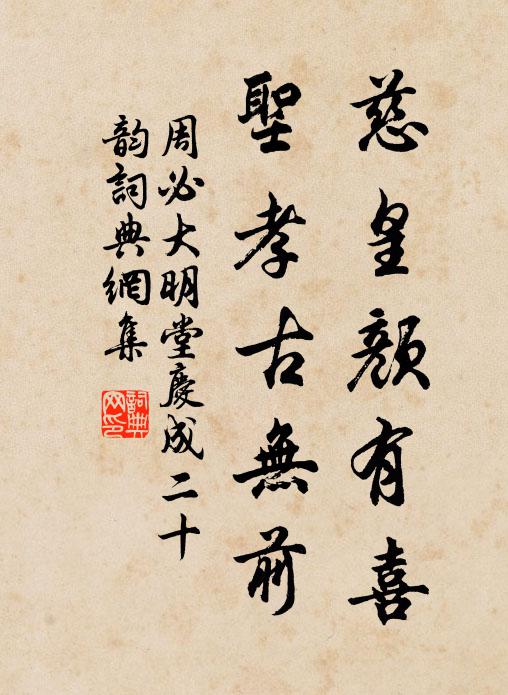 慈皇顏有喜
聖孝古無前
周必大明堂慶成二十
韵詞典網集
詞典网印